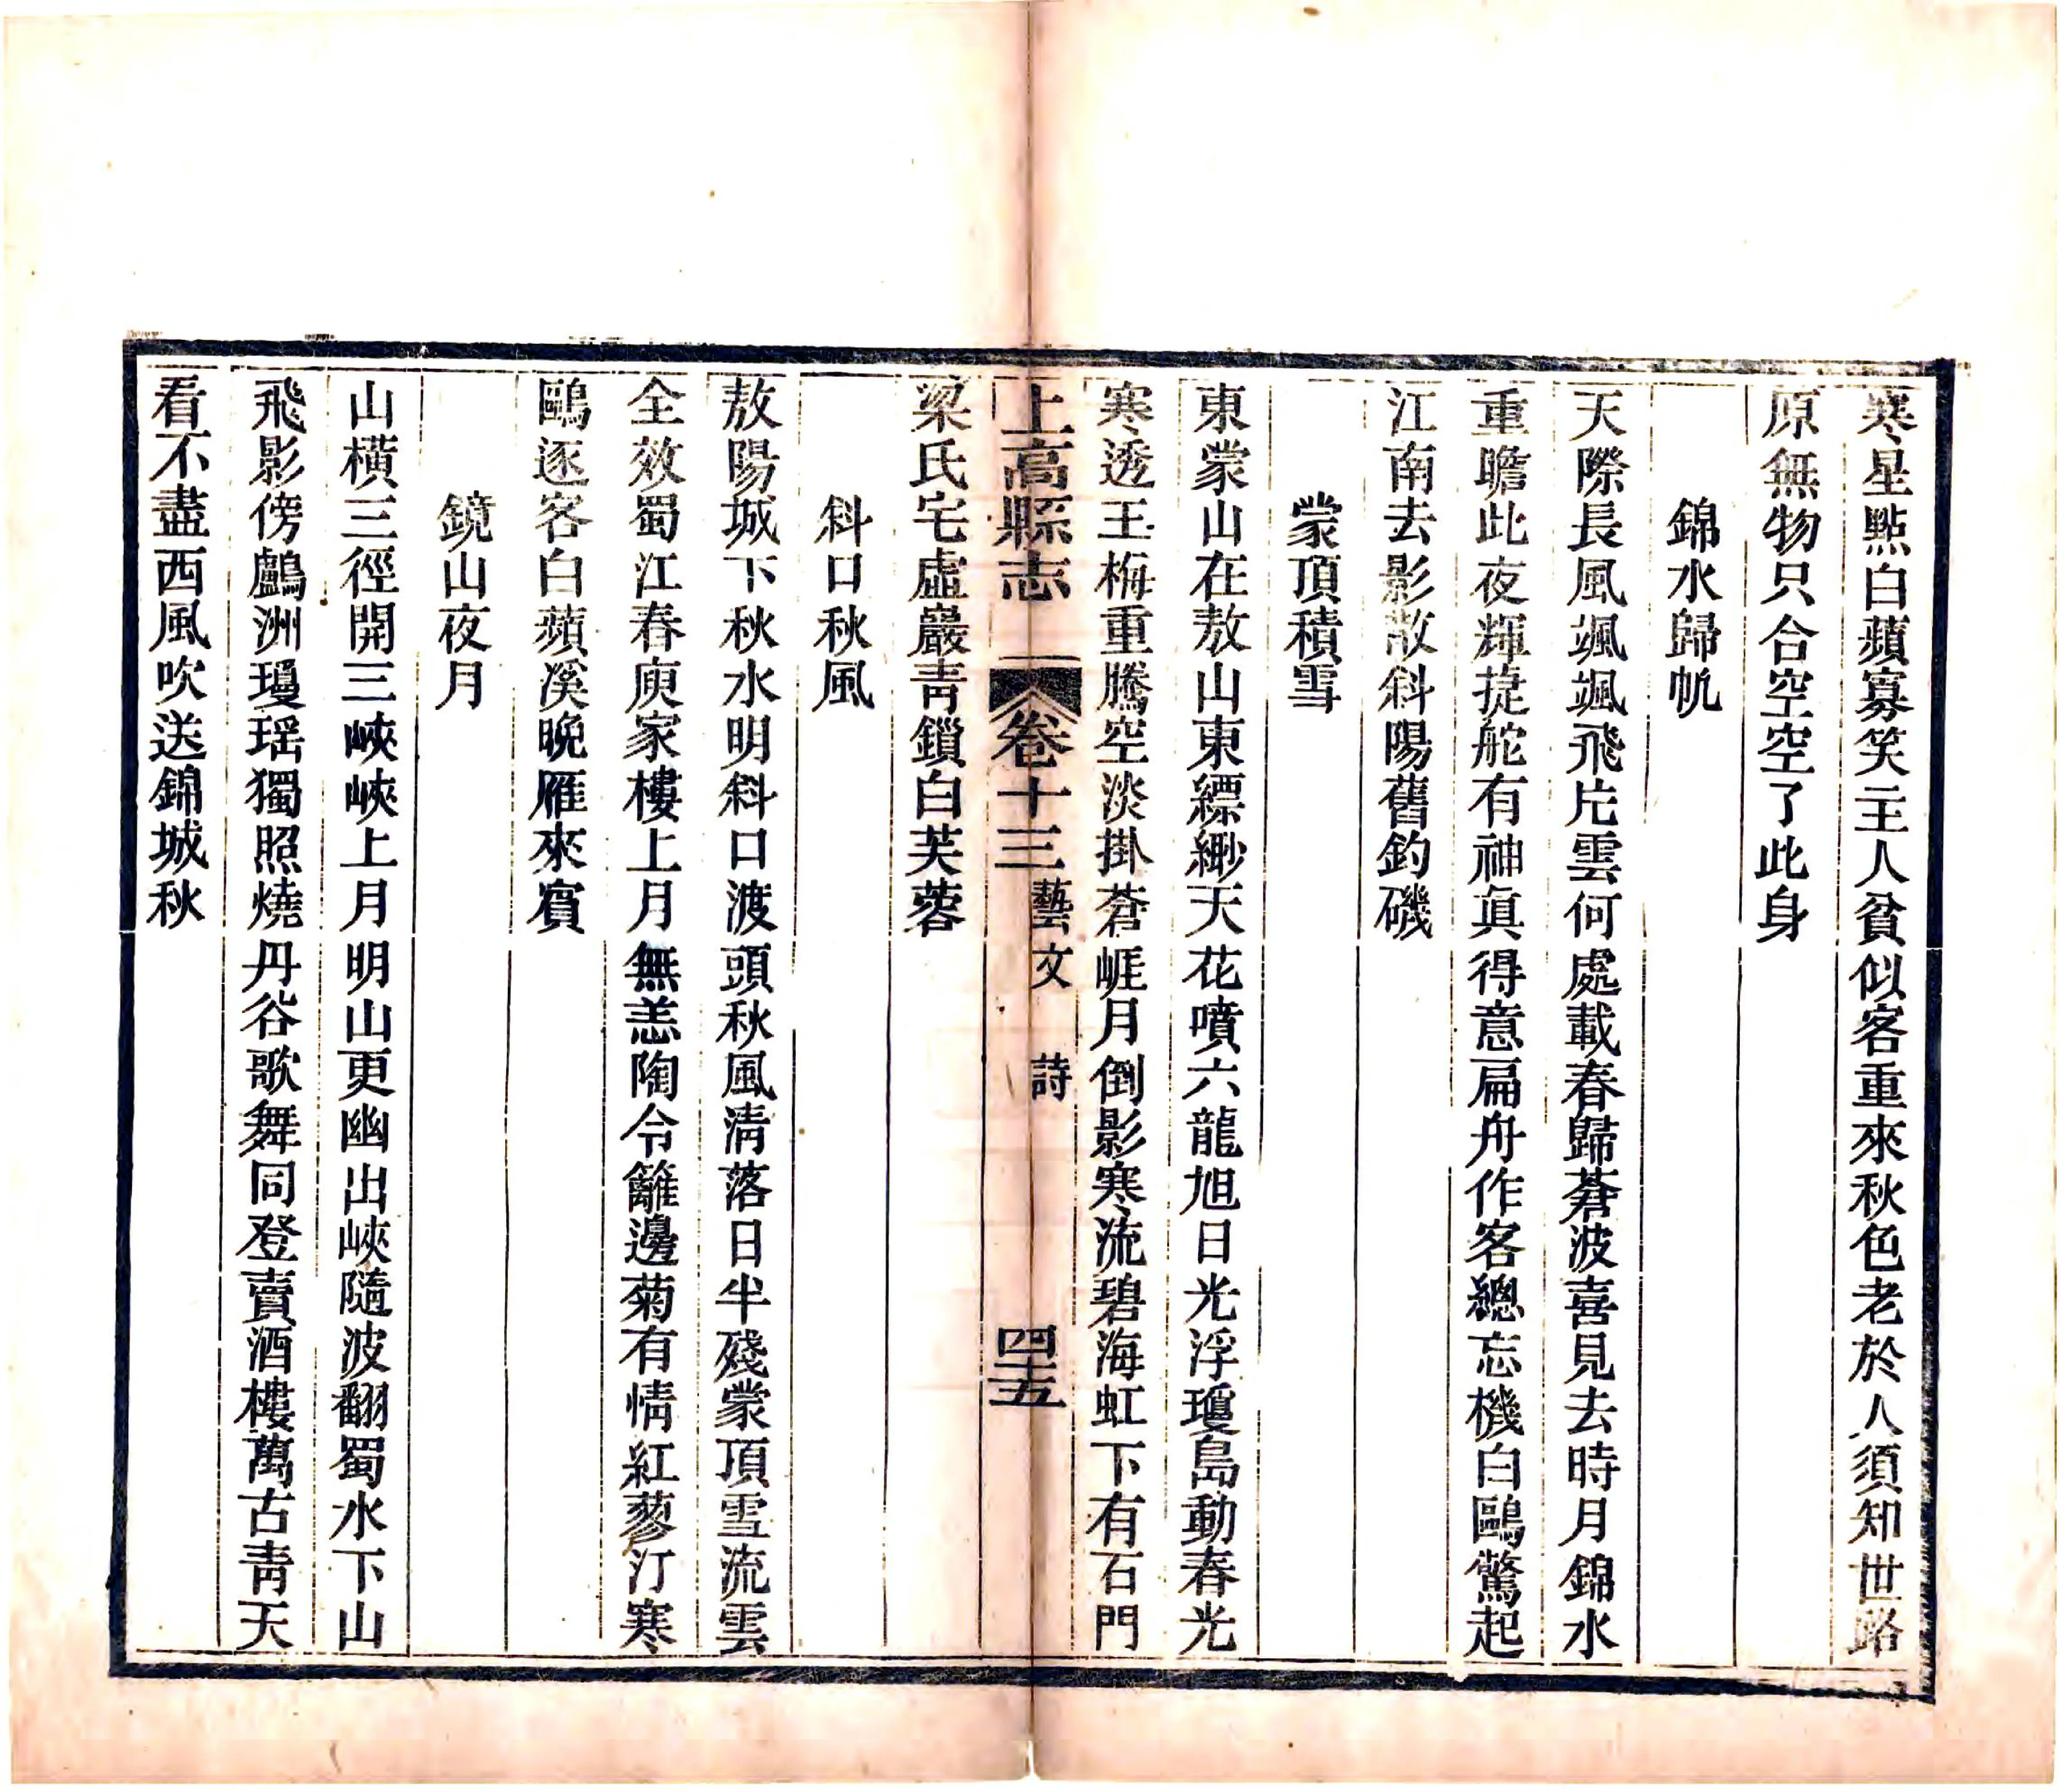 寒星點白蘋寡笑主人貧似客重來秋色老於人須知世路
原無物只合空空了此身
錦水歸帆
天際長風颯颯飛片雲何處載春歸蒼波喜見去時月錦水
重瞻此夜輝捩舵有神眞得意扁舟作客總忘機白鷗驚起
江南去影散斜陽舊釣磯
蒙頂積雪
東蒙山在敖山東縹緲天花噴六龍旭日光浮瓊島動春光
寒透王梅重騰空淡掛蒼崕月倒影寒流碧海虹下有石門
梁氏宅虛巖靑鎖白芙蓉
上高縣志 卷十三 藝文 詩 四十五
斜口秋風
敖陽城下秋水明斜口渡頭秋風淸落日半殘蒙頂雪流雲
全效蜀江春庾家樓上月無恙陶令籬邊菊有情紅蓼汀寒
鷗逐客白蘋溪晚雁來賓
鏡山夜月
山橫三徑開三峽峽上月明山更幽出峽隨波翻蜀水下山
飛影傍鸕洲瓊瑶獨照燒丹谷歌舞同登賣酒樓萬古靑天
看不盡西風吹送錦城秋